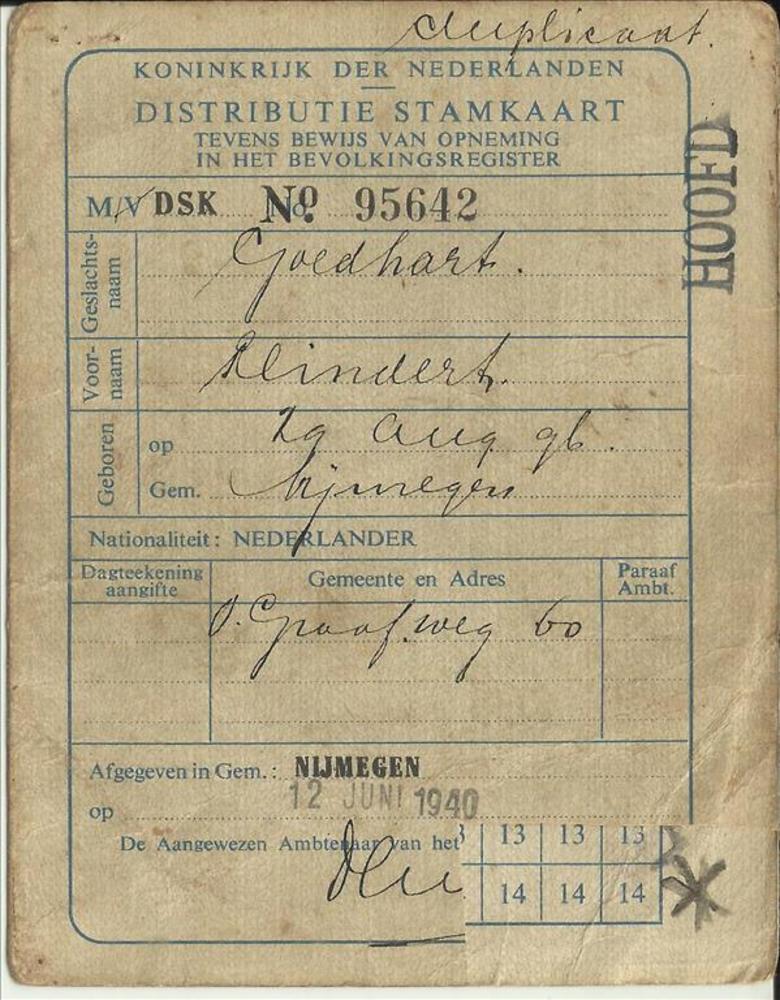 duplicaat.
KONINKRIJK DER NEDERLANDEN
DISTRIBUTIE STAMKAART
TEVENS BEWIJS VAN OPNEMING
IN HET BEVOLKINGSREGISTER
HOOFD
M/V DSK No. 95642
Geslachts-
naam
Goedhart.
Voor-
naam
Reindert.
Geboren
op 29 Aug 96.
Gem. Nijmegen
Nationaliteit: NEDERLANDER
Dagteekening
aangifte
Gemeente en Adres
Paraaf
Ambt.
Graafseweg 60
Afgegeven in Gem.: NIJMEGEN
op 12 JUNI 1940
De Aangewezen Ambtenaar van het
13 13 13
14 14 14